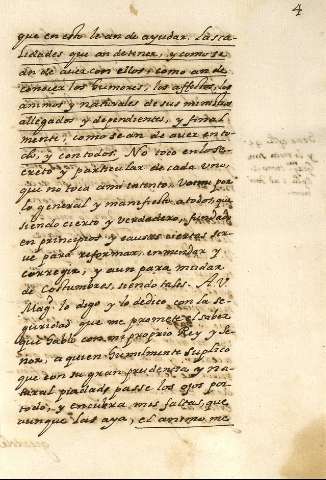 4
que en esto le an de ayudar. las ca-
lidades que an de tener, y como se
an de auer con ellos; como an de
conocer los humores, los affectos, los
animos y naturales de sus ministros
allegados y dependientes, y final
mente, como se an de auer en to
do, y con todos. No toco en lo se-
creto y particular de cada uno,
que no toca a mi intento, voime por
lo general y manifiesto a todos, que
siendo cierto y verdadero, fundado
en principios y causas ciertas sir-
ue para reformar, enmendar y
corregir, y aun para mudar
de costumbres, siendo tales. A V.
Magd. lo digo y lo dedico, con la se-
guridad que me promete el saber
que hablo con mi proprio Rey y Se-
ñor, a quien humilmente suplico
que con su gran prudencia y na-
tural piadad passe los ojos por
todo, y encubra mis faltas, que
aunque las aya, el animo me